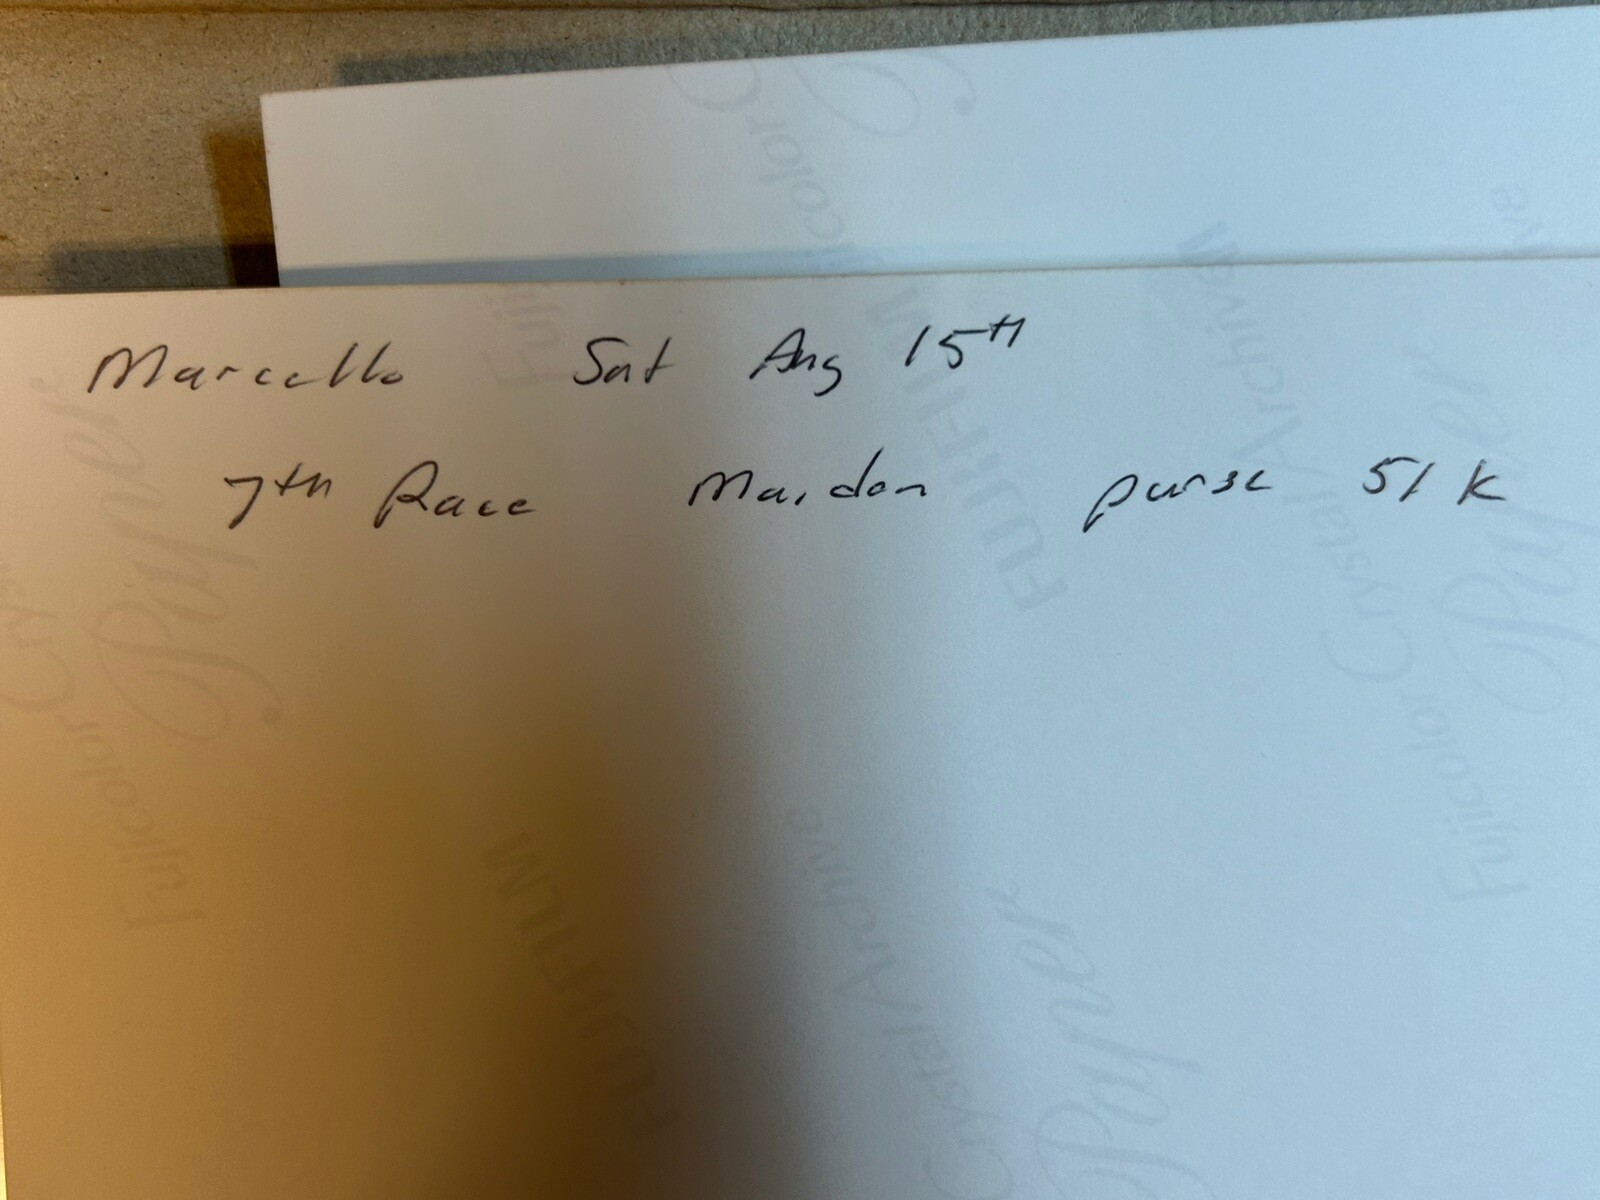 Marcello Sat Aug 15th
7th Race Maiden purse 51K
Fujicolor Crystal Archive
FUJIFILM
Fujicolor Crystal Archive
FUJIFILM
Crystal Archive